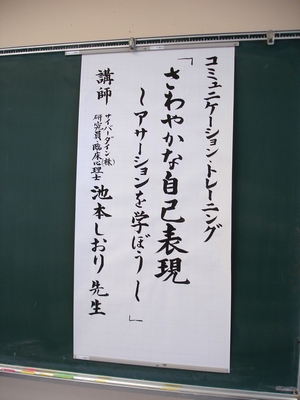 コミュニケーション・トレーニング
「さわやかな自己表現
～アサーションを学ぼう～」
講師 サイバーダイン(株)
研究員 臨床心理士 池本しおり 先生